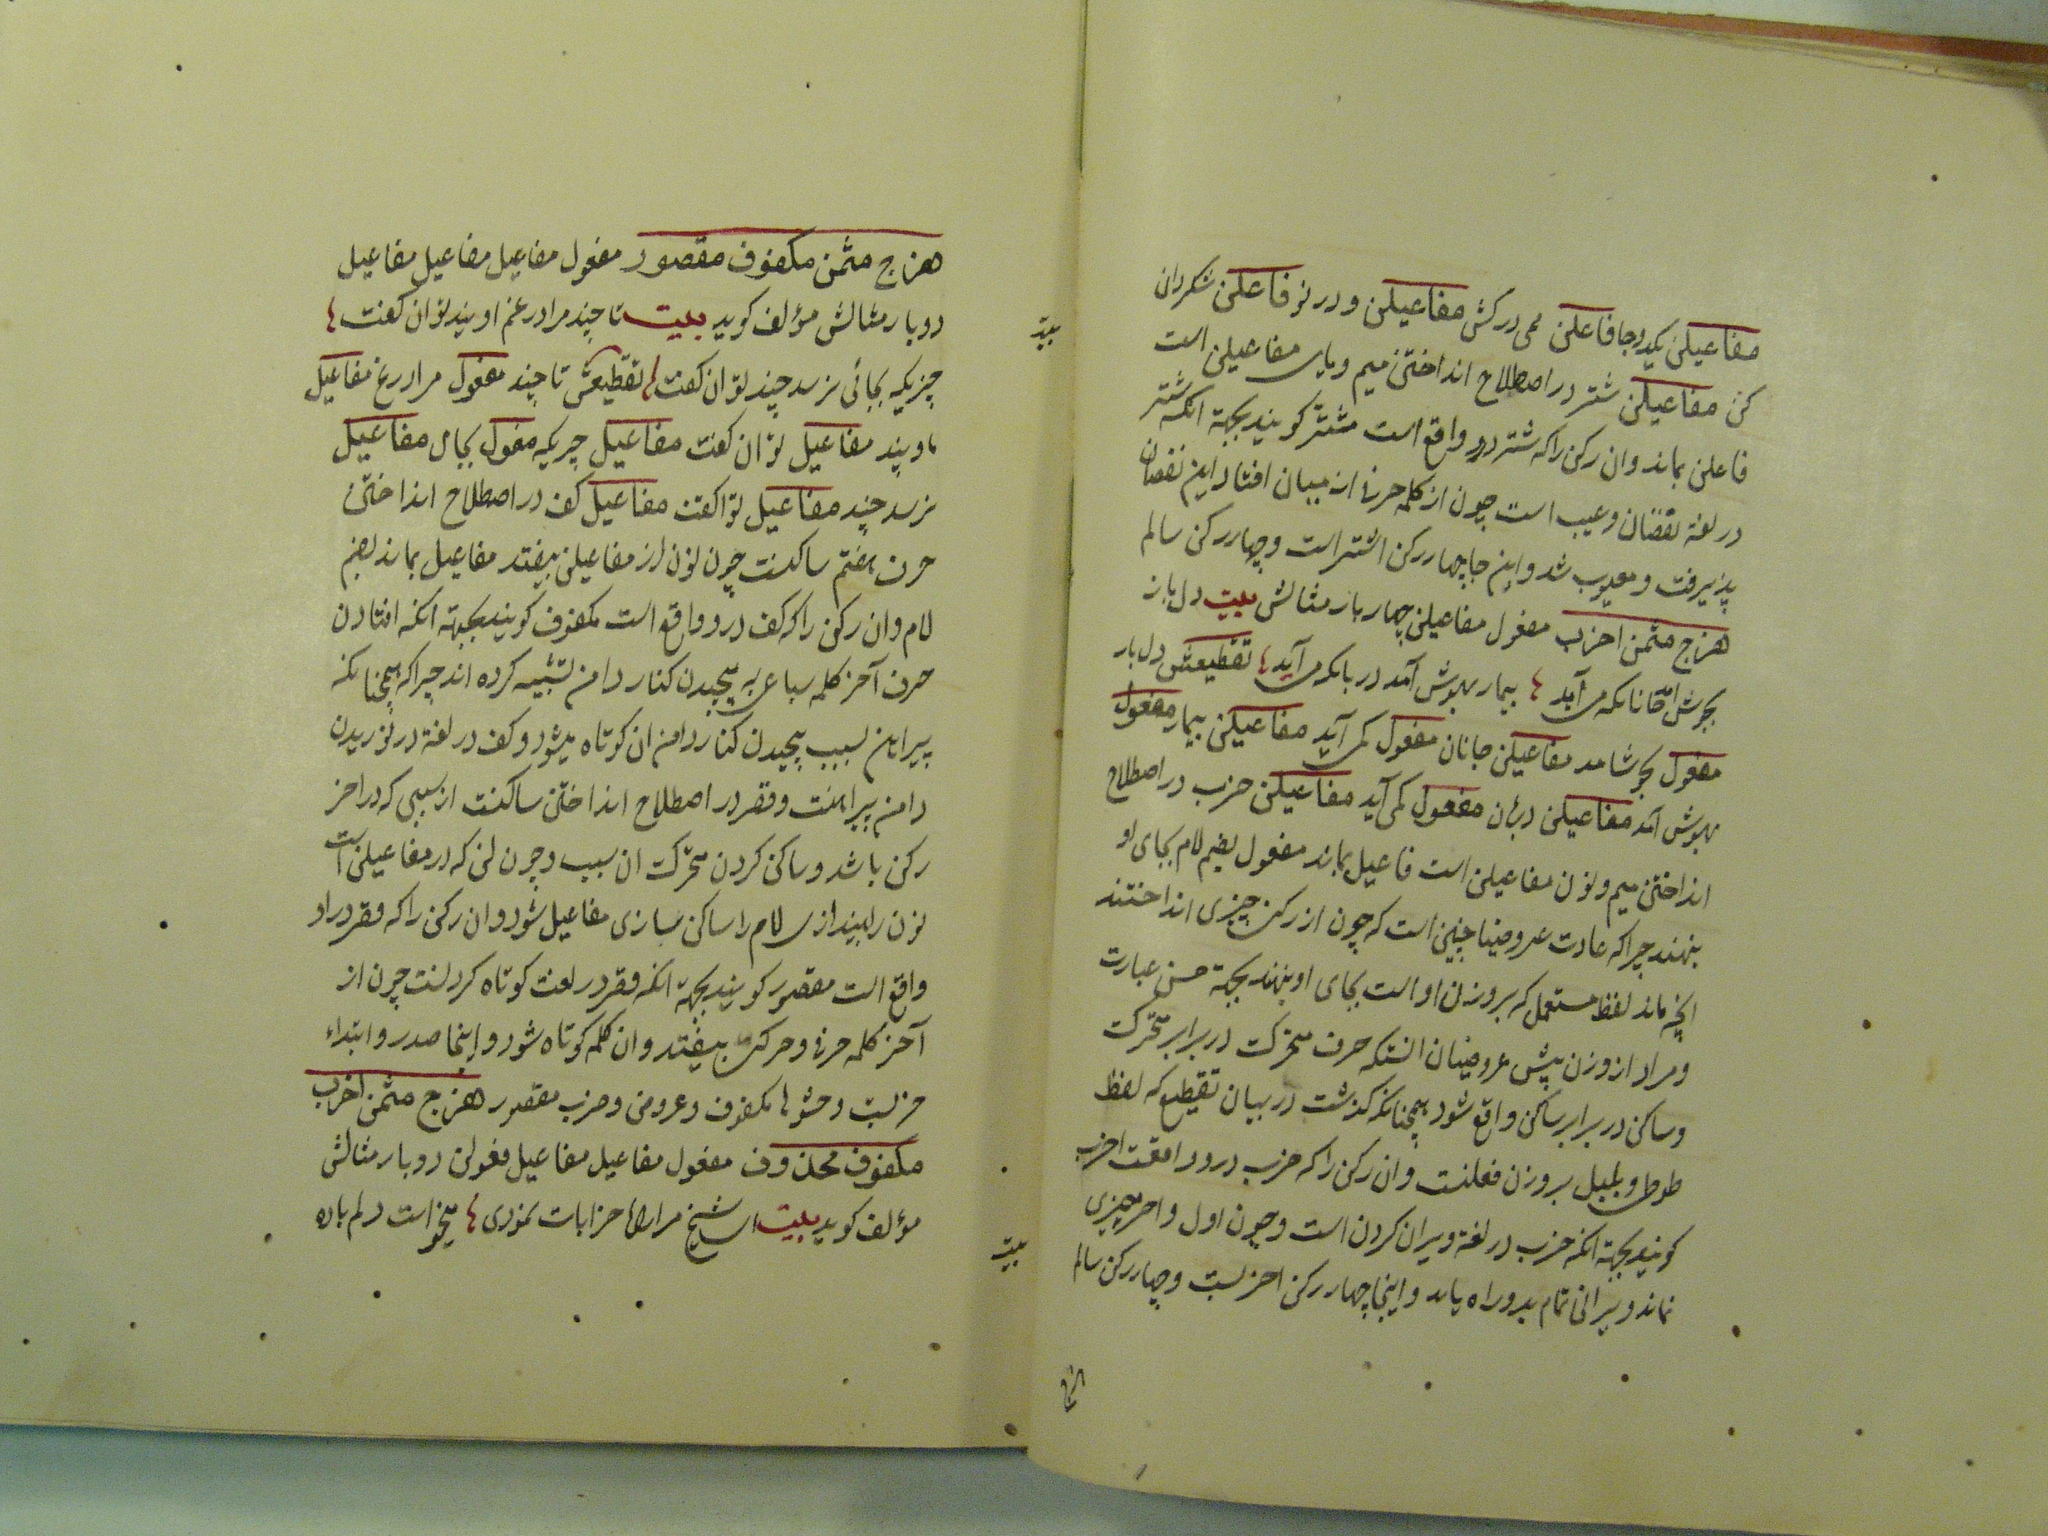 مفاعیلن یکدوجا فاعلن می درکش مفاعیلن و در نو فاعلن شکردان
کن مفاعیلن شتر در اصطلاح انداختن میم و یای مفاعیلن است
فاعلن بماند و ان رکن را که شتر درو واقع است مشتر کویند بجهة انکه شتر
در لغة نقصان و عیب است چون از کلمه حرفی از میان افتاد این نقصان
پذیرفت و معیوب شد و این جا چهار رکن اشتر است و چهار رکن سالم
هزج مثمن اخرب مفعول مفاعیلن چهار بار مثالش بیت دل باز
بجوش امد جانانکه می آید بیمار بهوش آمد دربانکه می آید تقطیعش دل بار
مفعول بجوشامد مفاعیلن جانان مفعول کمی آید مفاعیلن بیمار مفعول
بهوش آمد مفاعیلن دربان مفعول کمی آید مفاعیلن خرب در اصطلاح
انداختن میم و نون مفاعیلن است فاعیل بماند مفعول بضم لام بجای او
بنهند چراکه عادت عروضیان چنین است که چون از رکن چیزی انداختند
انچه ماند لفظ مستعمل که بر وزن او است بجای او بنهند بجهة حسن عبارت
و مراد از وزن پیش عروضیان انستکه حرف متحرک در برابر متحرک
و ساکن در برابر ساکن واقع شود همچنانکه کذشت در بیان تقطیع که لفظ
طوطی و بلبل بر وزن فعلنست و ان رکن را که خرب درو واقعست اخرب
کویند بجهة انکه خرب در لغة ویران کردن است و چون اول و اخر چیزی
نماند ویرانی تمام بدو راه یابد و اینجا چهار رکن اخربست و چهار رکن سالم
هزج مثمن مکفوف مقصور مفعول مفاعیل مفاعیل مفاعیل
دو بار مثالش مؤلف کوید بیت تا چند مرا در غم او پند توان کفت
چزیکه بجائی نرسد چند توان کفت تقطیعش تا چند مفعول مرا در غ مفاعیل
ماو پند مفاعیل توان کفت مفاعیل چزیکه مفعول بجای مفاعیل
نرسد چند مفاعیل توا کفت مفاعیل کف در اصطلاح انداختن
حرف هفتم ساکنست چون نون از مفاعیلن بیفتد مفاعیل بماند بضم
لام و ان رکن را که کف درو واقع است مکفوف کویند بجهة انکه افتادن
حرف آخر کلمه سباعی به پیچیدن کنار دامن تشبیه کرده اند چراکه همچنانکه
پیراهن بسبب پیچیدن کنار دامن ان کوتاه میشود و کف در لغة در نوریدن
دامن پیراهنست و قصر در اصطلاح انداختن ساکنست از سببی که در اخر
رکن باشد و ساکن کردن متحرک ان سبب و چون لن که در مفاعیلن است
نون را بیندازی لام را ساکن سازی مفاعیل شود و ان رکن را که قصر در او
واقع است مقصور کویند بجهة انکه قصر در لغت کوتاه کردنست چون از
آخر کلمه حرفی و حرکتی بیفتد و ان کلمه کوتاه شود و اینجا صدر و ابتداء
خربست و حشوها مکفوف و عروض و ضرب مقصور هزج مثمن اخرب
مکفوف محذوف مفعول مفاعیل مفاعیل فعولن دو بار مثالش
مؤلف کوید بیت ای شیخ مرا راه خرابات نمودی میخواست دلم باده
بیت
بیت